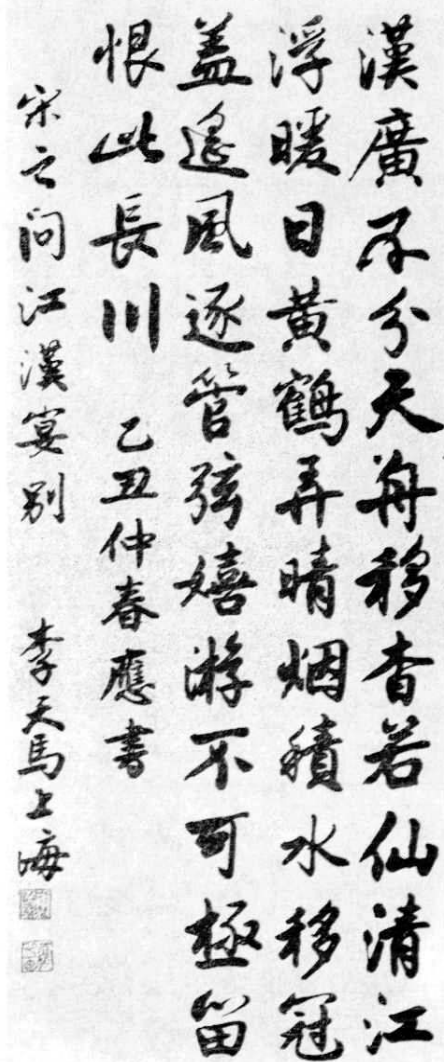 漢廣不分天舟移杳若仙清江
浮暖日黃鶴弄晴烟積水移冠
蓋遙風逐管弦嬉游不可極留
恨此長川 乙丑仲春應書
宋之问江漢宴别 李天馬上海